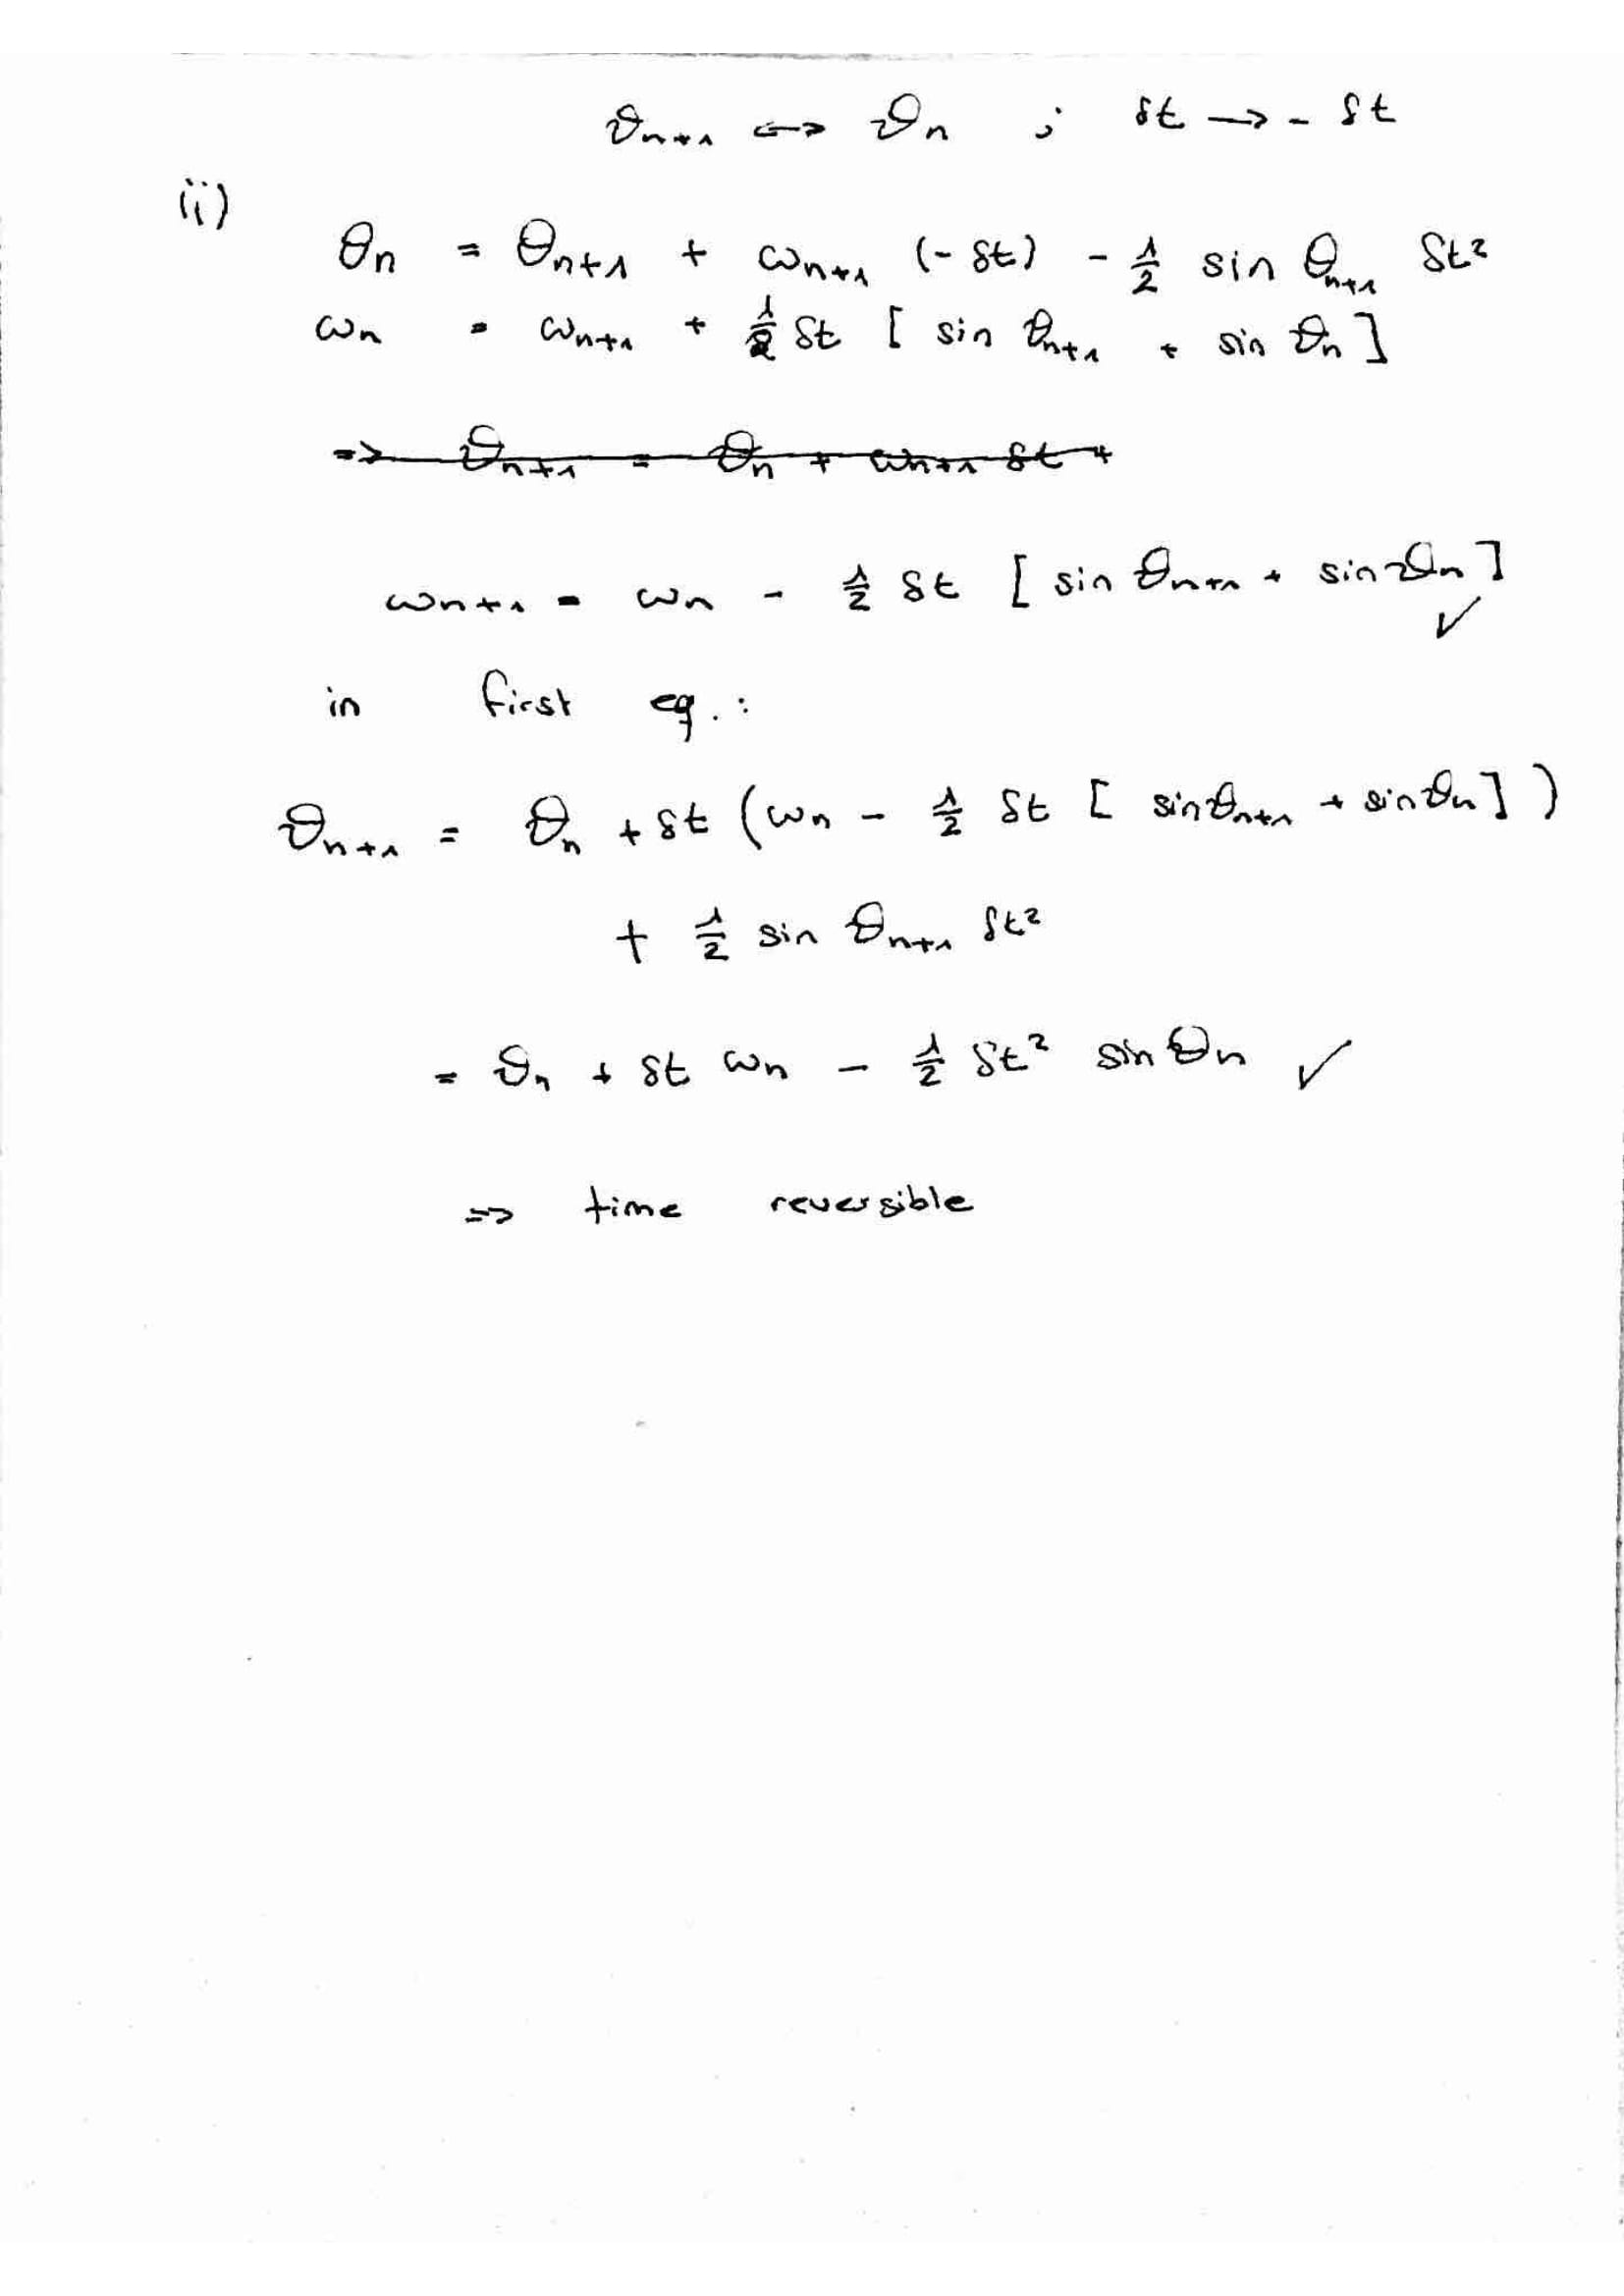 ϑn+1 <-> ϑn ; δt -> - δt
ii)
θn = θn+1 + ωn+1 (- δt) - 1/2 sin θn+1 δt²
ωn = ωn+1 + 1/2 δt [ sin ϑn+1 + sin ϑn ]
=> ϑn+1 = ϑn + ωn+1 δt +
ωn+1 = ωn - 1/2 δt [ sin ϑn+1 + sin ϑn ] ✓
in first eq.:
ϑn+1 = ϑn + δt (ωn - 1/2 δt [ sin ϑn+1 + sin ϑn ] )
+ 1/2 sin ϑn+1 δt²
= ϑn + δt ωn - 1/2 δt² sin ϑn ✓
=> time reversible